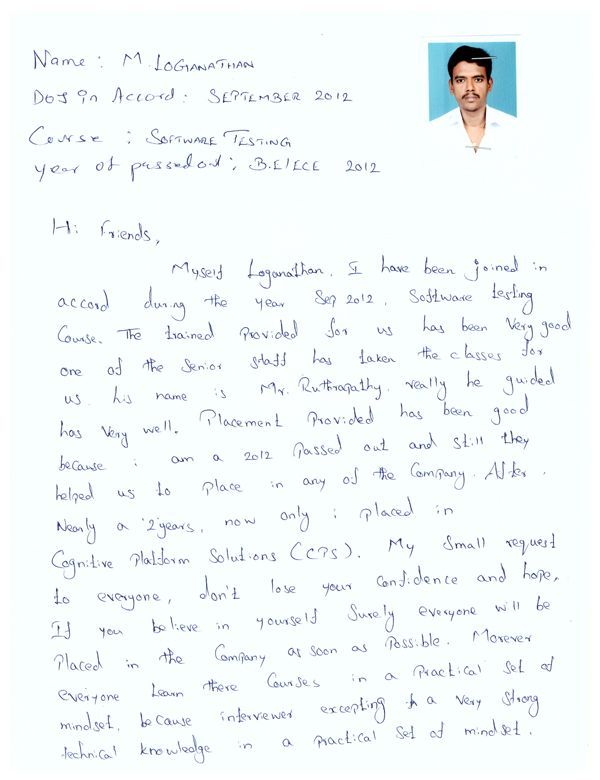 Name : M. LOGANATHAN
DOJ in Accord : SEPTEMBER 2012
Course : SOFTWARE TESTING
year of passedout : B.E/ECE 2012
Hi Friends,
Myself Loganathan. I have been joined in
accord during the year Sep 2012. Software testing
Course. The trained Provided for us has been Very good
one of the Senior staff has taken the classes for
us. his name is Mr. Ruthrapathy. really he guided
has very well. Placement Provided has been good
because i am a 2012 Passed out and still they
helped us to place in any of the Company. After
Nearly a '2'years, now only i placed in
Cognitive Platform Solutions (CPS). My Small request
to everyone, don't lose your confidence and hope.
If you believe in yourself Surely everyone will be
Placed in the Company as soon as Possible. Morever
everyone learn there Courses in a Practical Set of
mindset. because interviewer excepting a very Strong
technical knowledge in a practical Set of mindset.